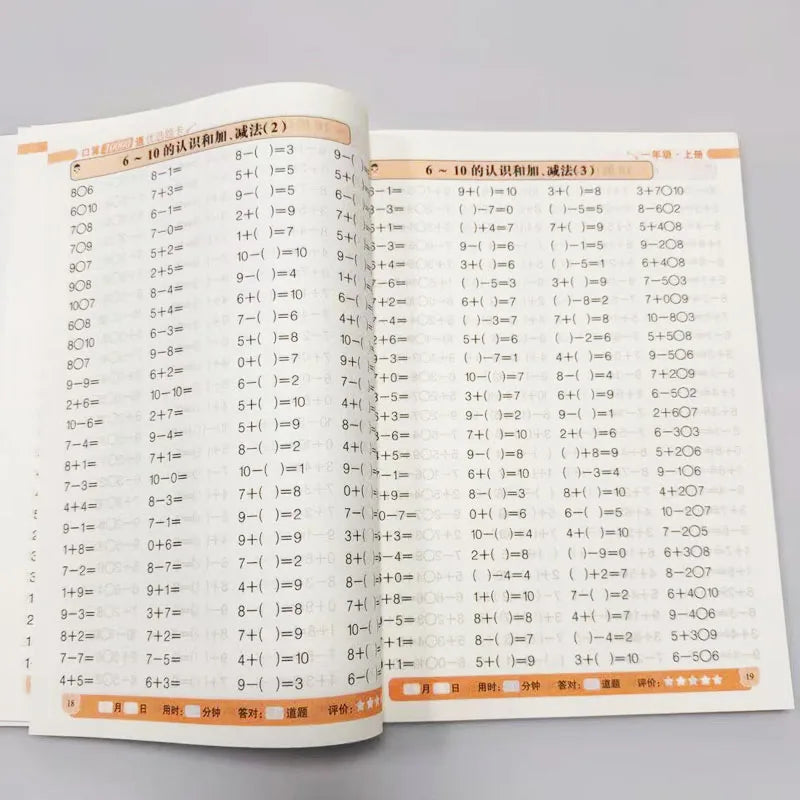 口算10000道
6～10的认识和加、减法(2)
8○6
6○10
7○8
7○9
9○7
9○8
10○7
6○8
8○10
8○7
9−9=
2+6=
10−6=
7−4=
8+1=
7−3=
4+4=
9−1=
1+8=
7−2=
1+9=
9−3=
8+2=
7−7=
4+5=
8−1=
7+3=
6−1=
7−0=
5+2=
2+5=
8−4=
5+4=
6−3=
9−8=
6+2=
10−10=
2+7=
9−4=
7+1=
10−0=
8−3=
7−1=
0+6=
8−7=
9−1=
3+7=
7+2=
7−5=
6+3=
8−( )=3
9−( )=5
5+( )=5
2+( )=9
1+( )=7
10−( )=10
9−( )=4
6+( )=10
7−( )=6
5+( )=8
0+( )=7
6−( )=2
5+( )=10
5+( )=9
8−( )=2
10−( )=1
7+( )=8
9−( )=2
9−( )=7
7−( )=6
4+( )=9
8−( )=8
7+( )=9
4+( )=10
9−( )=3
9−(
5+(
6−(
7+(
5+(
9−(
1+(
6−(
4+(
10−(
9+(
7−(
4+(
8−(
9−(
0+(
7−(
3+(
8+(
8−(
7+(
10−(
9−(
6−(
18 月 日 用时: 分钟 答对: 道题 评价:
一年级·上册
6～10的认识和加、减法(3)
−1=
−3=
+1=
−1=
+4=
−7=
+2=
−4=
+2=
−3=
+0=
−5=
−2=
−4=
−2=
−1=
+4=
0−7=
+3=
−4=
+0=
+1=
−2=
+1=
+1=
9+( )=10
( )−7=0
( )+4=7
9−( )=6
3+( )=6
( )−3=5
6+( )=7
( )−3=7
5+( )=6
( )−7=1
10−( )=7
3+( )=7
9−( )=2
7+( )=10
9−( )=8
6+( )=10
8−( )=3
0+( )=6
10−( )=4
2+( )=8
( )−4=4
1+( )=10
8+( )=8
8−( )=7
5+( )=9
3+( )=8
( )−5=5
7+( )=9
( )−1=5
( )−5=1
3+( )=9
( )−8=2
7+( )=8
( )−2=6
4+( )=6
8−( )=4
6+( )=9
9−( )=1
2+( )=6
( )+8=9
( )−3=4
8+( )=10
6−( )=5
4+( )=10
( )−9=0
( )+2=7
7−( )=2
4+( )=7
( )−4=2
3+( )=10
3+7○10
8−6○2
5+4○8
9−2○8
6+4○8
7−5○3
7+0○9
10−8○3
5+5○8
9−5○6
7+2○9
6−5○2
2+6○7
6−3○3
5+2○6
9−1○6
4+2○7
10−2○7
7−2○5
6+3○8
8−2○7
6+4○10
9−4○6
5+3○9
6−5○6
月 日 用时: 分钟 答对: 道题 评价: 19